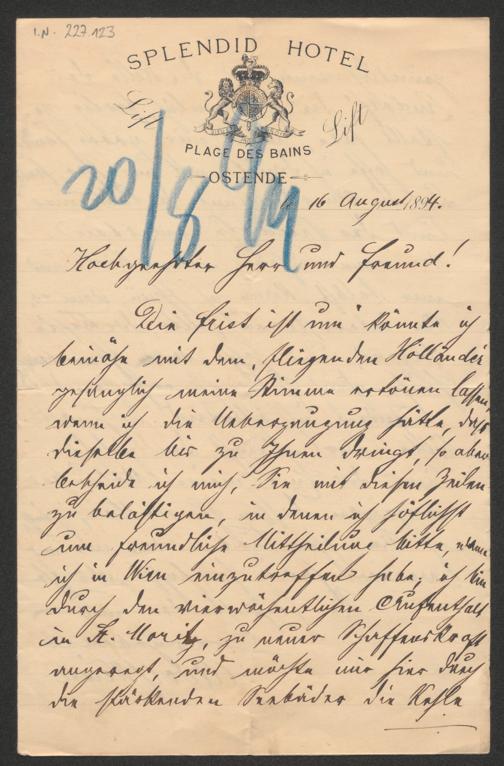 I.N. 227.123
SPLENDID HOTEL
Lift Lift
PLAGE DES BAINS
OSTENDE
16 August 1894.
20/8 94
Hochgeehrter Herr und Freund!
"Die Frist ist um" könnte ich
beinahe mit dem "fliegenden Holländer"
gesanglich meine Stimme ertönen lassen,
wenn ich die Ueberzeugung hätte, daß
dieselbe bis zu Ihnen dringt, so aber
bescheide ich mich, Sie mit diesen Zeilen
zu belästigen, in denen ich höflichst
um freundliche Mittheilung bitte, wann
ich in Wien einzutreffen habe; ich bin
durch den vierwöchentlichen Aufenthalt
in St. Moritz, zu neuer Schaffenskraft
angeregt, und möchte nur hier durch
die stärkenden Seebäder die Kehle